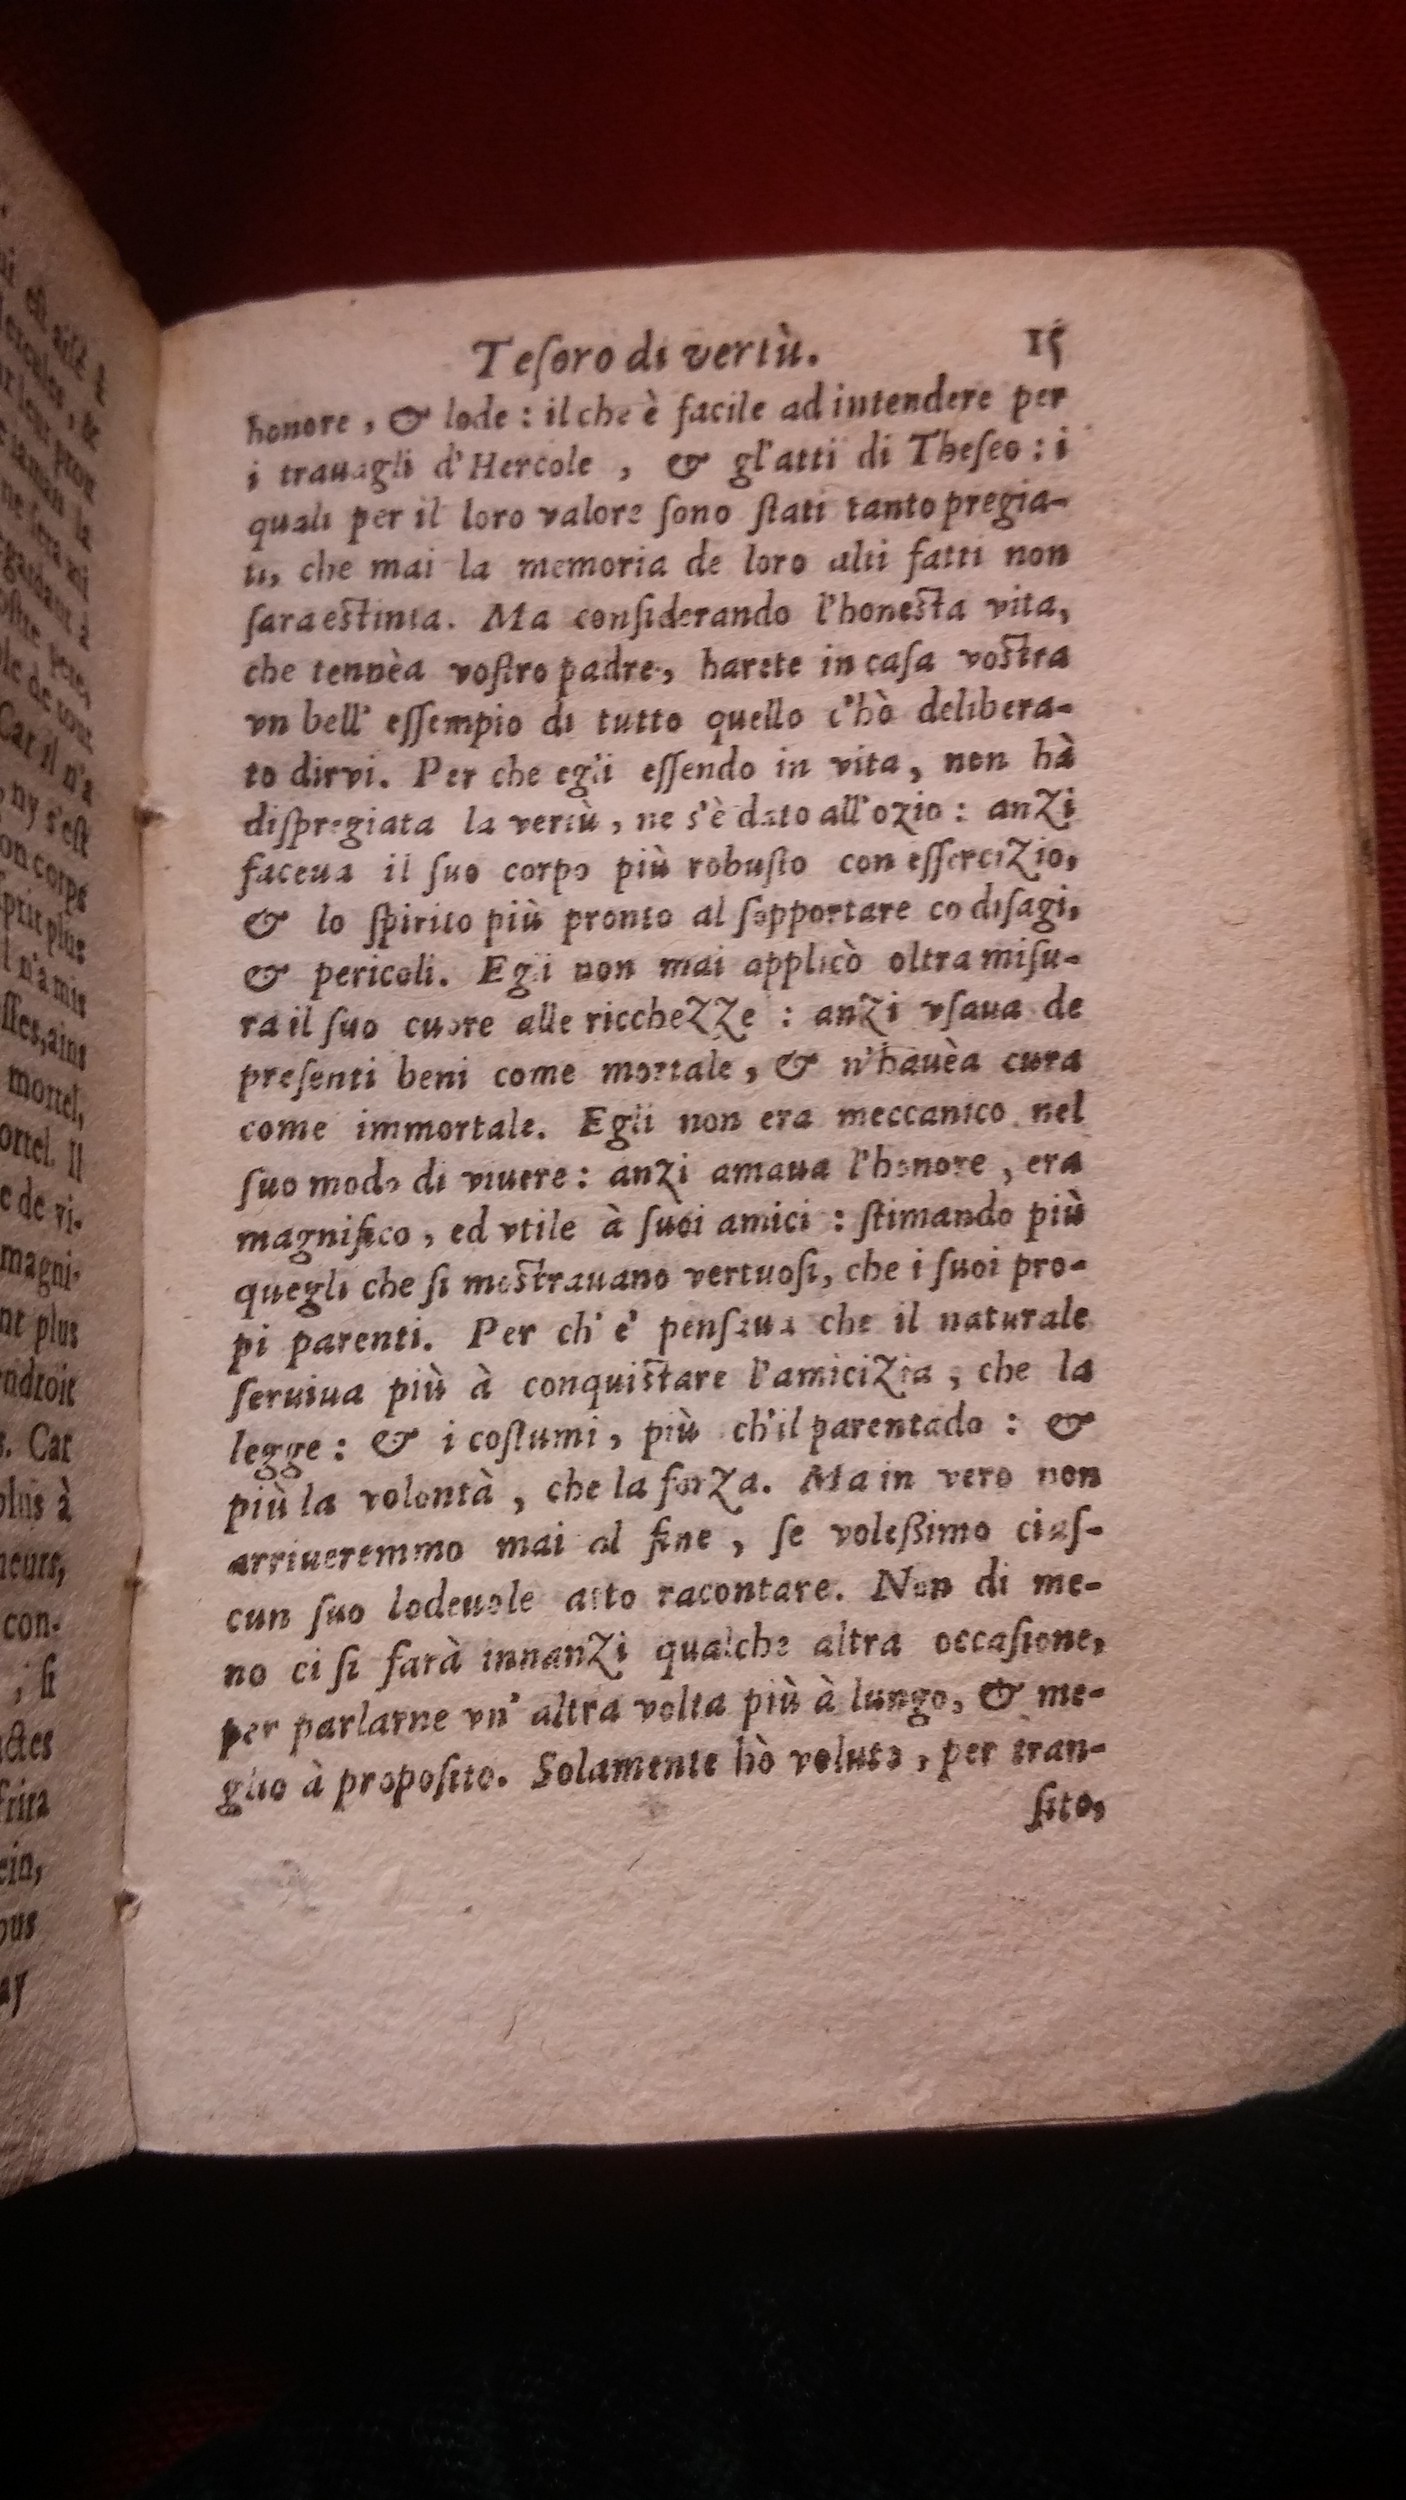 i est aisé &
Hercules, &
ne sera mi
Car il n'a
, ny s'est
on corps
sprit plus
l n'a mis
sses, ains
mortel,
ortel. Il
e de vi-
magni-
nt plus
endroit
s. Car
plus à
neurs,
con-
; si
actes
frira
ein,
ous
ay
Teſoro di vertù. 15
honore, & lode : il che è facile ad intendere per
i trauagli d'Hercole , & gl'atti di Theſeo : i
quali per il loro valore ſono ſtati tanto pregia-
ti, che mai la memoria de loro alti fatti non
ſara estinta. Ma conſiderando l'honesta vita,
che tennèa voſtro padre, harete in caſa vostra
vn bell' eſſempio di tutto quello c'hò delibera-
to dirvi. Per che egli eſſendo in vita, non hà
diſpregiata la vertù, ne s'è dato all'ozio : anzi
faceua il ſuo corpo più robuſto con eſſercizio,
& lo ſpirito più pronto al ſopportare co diſagi,
& pericoli. Egli non mai applicò oltra miſu-
ra il ſuo cuore alle ricchezze : anzi vſaua de
preſenti beni come mortale, & n'hauèa cura
come immortale. Egli non era meccanico nel
ſuo modo di viuere : anzi amaua l'honore, era
magnifico, ed vtile à ſuoi amici : ſtimando più
quegli che ſi mostrauano vertuoſi, che i ſuoi pro-
pi parenti. Per ch' e' penſaua che il naturale
ſeruiua più à conquistare l'amicizia, che la
legge : & i coſtumi, più ch'il parentado : &
più la volontà, che la forza. Ma in vero non
arriueremmo mai al fine, ſe voleßimo ciaſ-
cun ſuo lodeuole atto racontare. Non di me-
no ci ſi farà innanzi qualche altra occaſione,
per parlarne vn' altra volta più à lungo, & me-
glio à propoſito. Solamente hò voluto, per tran-
ſito,